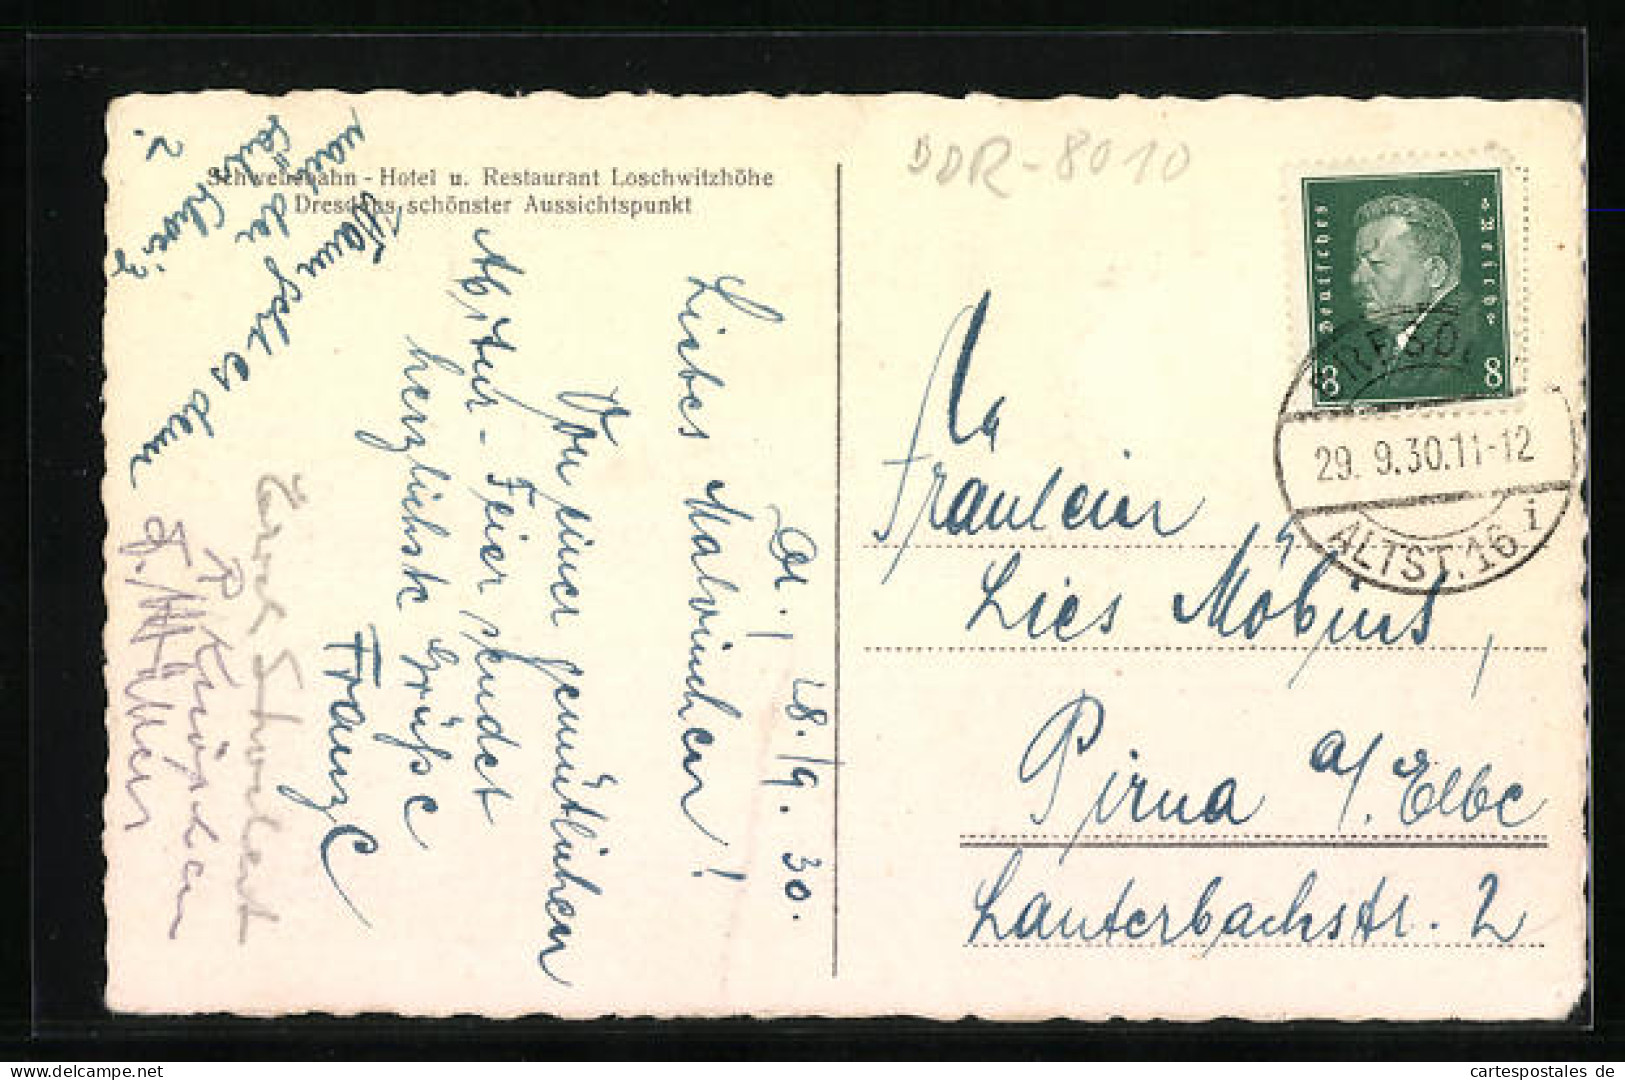 Schwebebahn - Hotel u. Restaurant Loschwitzhöhe
Dresdens schönster Aussichtspunkt
28./9. 30.
Liebes Malvinchen!
Von einer gemütlichen
Abitur - Feier sendet
herzlichste Grüße
Franz
Wann geht es denn
nach der
?
DDR-8010
Deutsches Reich
8 8
DRESD
29. 9.30.11-12
ALTST. 16 i
Fräulein
Lies Möbius,
Pirna a/. Elbe
Lauterbachstr. 2
cartespostales de